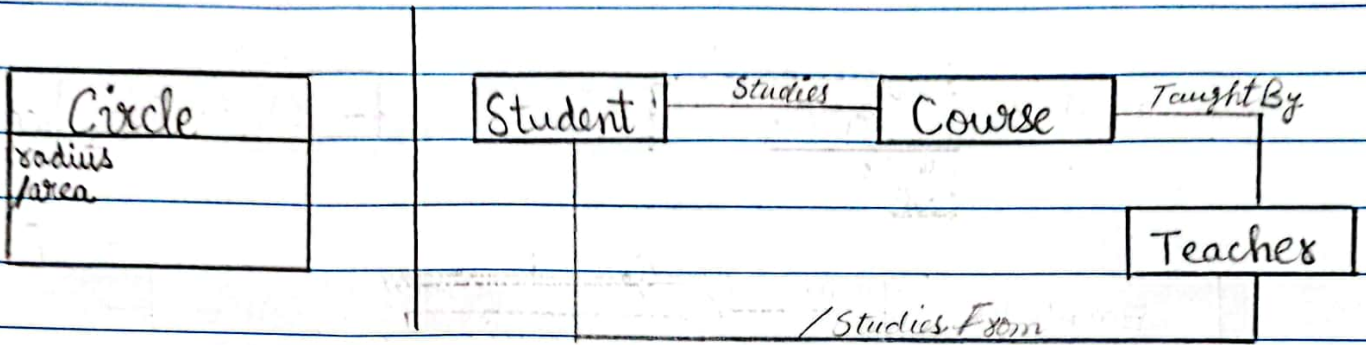 Circle
radius
/area
Student
Studies
Course
Taught By
Teacher
/Studies From